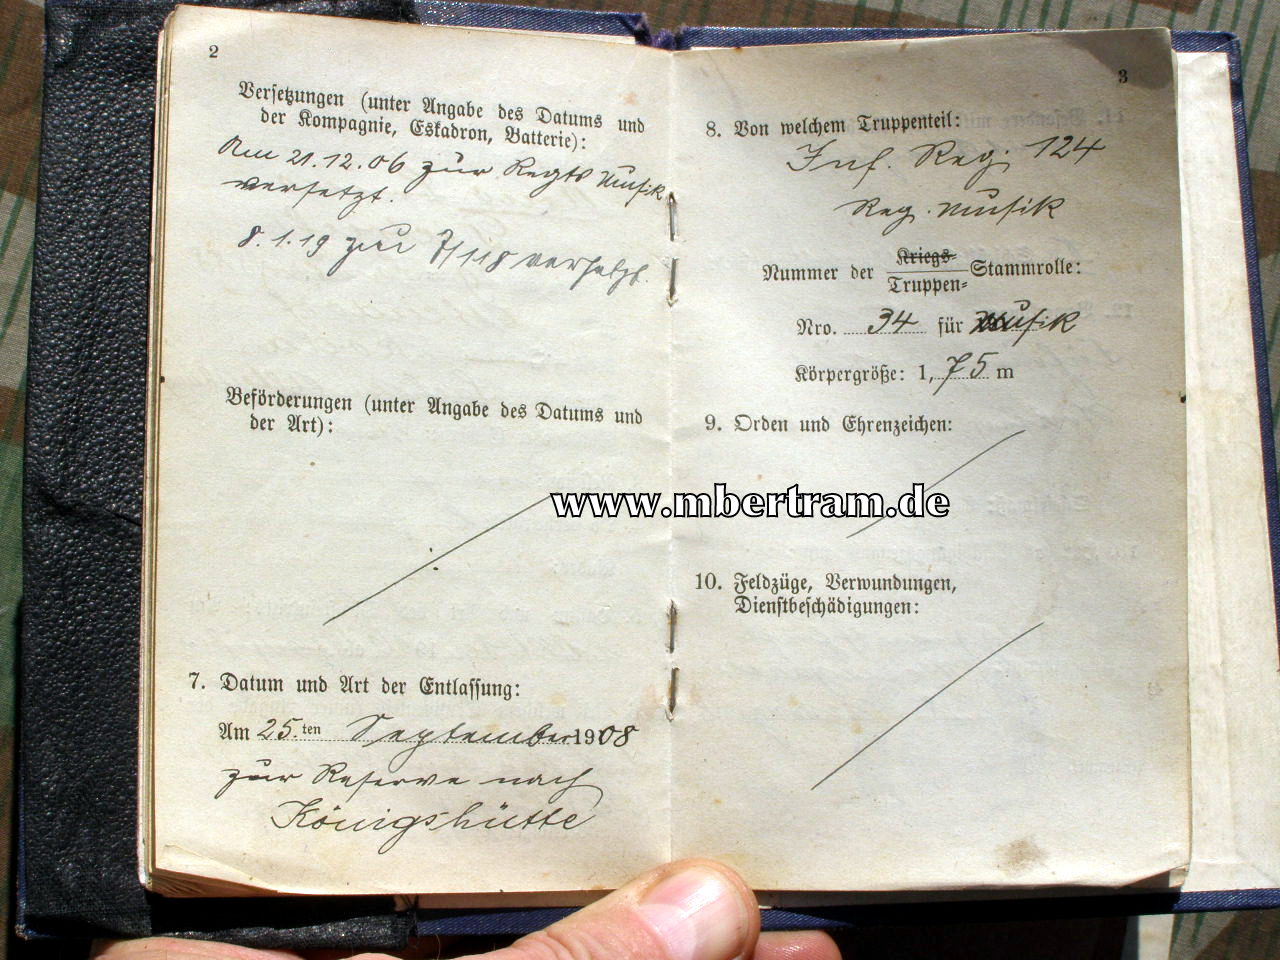 2
Versetzungen (unter Angabe des Datums und
der Kompagnie, Eskadron, Batterie):
Am 21.12.06 zur Regts Musik
versetzt.
8.1.19 zur 7/118 versetzt.
Beförderungen (unter Angabe des Datums und
der Art):
7. Datum und Art der Entlassung:
Am 25.ten September 1908
zur Reserve nach
Königshütte
3
8. Von welchem Truppenteil:
Inf. Reg. 124
Reg. Musik
Kriegs-
Nummer der Stammrolle:
Truppen-
Nro. 34 für Musik
Körpergröße: 1,75 m
9. Orden und Ehrenzeichen:
www.mbertram.de
10. Feldzüge, Verwundungen,
Dienstbeschädigungen: